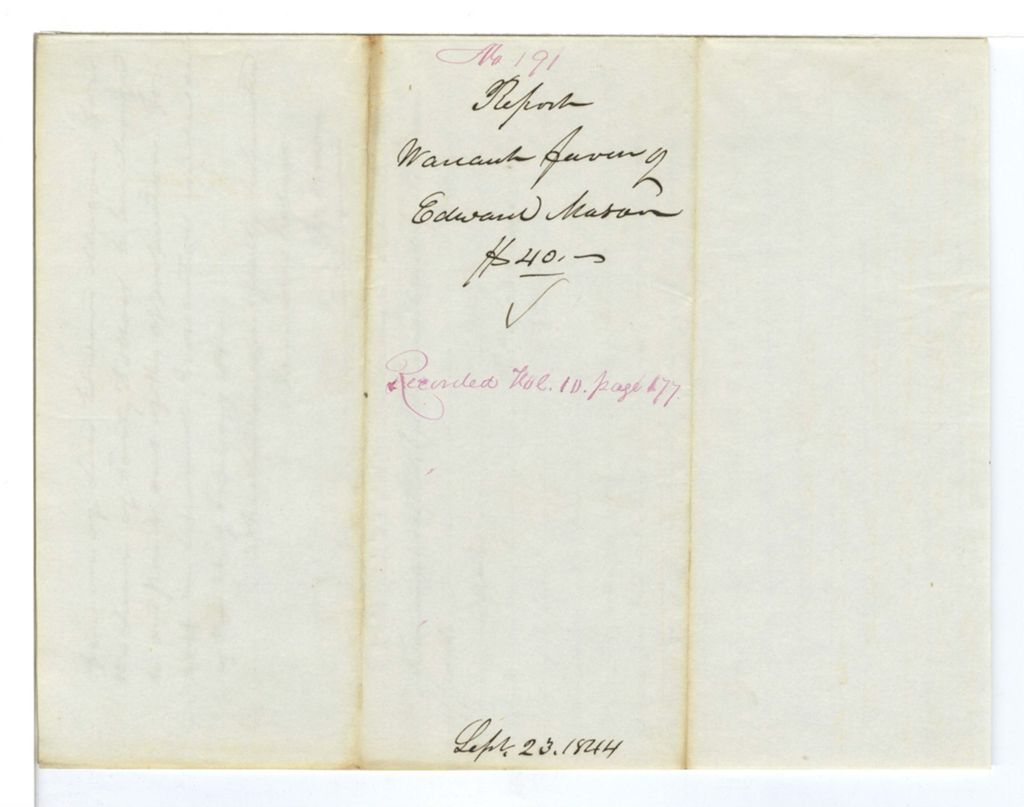 No 191
Report
Warrant favor of
Edward Mason
$40.—
Recorded Vol. 10. page 177.
Sept. 23. 1844